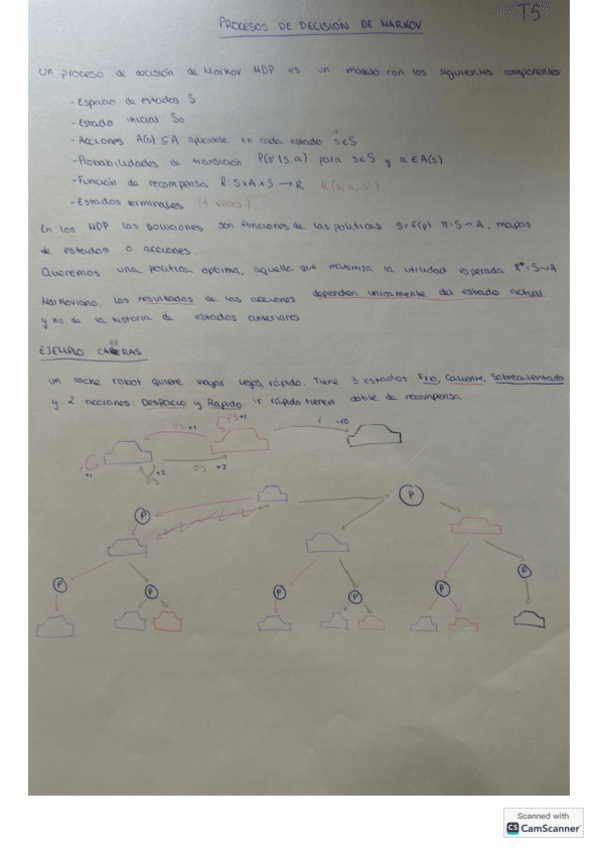 PROCESOS DE DECISIÓN DE MARKOV
T5
Un proceso de decisión de Markov MDP es un modelo con los siguientes componentes
- Espacio de estados S
- Estado inicial S0
- Acciones A(s) ⊆ A aplicable en cada estado s∈S
- Probabilidades de transición P(s'|s,a) para s∈S y a∈A(s)
- Función de recompensa R: S×A×S → R R(s,a,s')
- Estados terminales (A veces)
En los MDP las soluciones son funciones de las políticas s=f(p) π:S→A, mapas
de estados a acciones.
Queremos una política óptima, aquella que maximiza la utilidad esperada π*:S→A
Markoviano: los resultados de las acciones dependen únicamente del estado actual
y no de la historia de estados anteriores
EJEMPLO
Un coche robot quiere viajar lejos, rápido. Tiene 3 estados: Frío, Caliente, Sobrecalentado
y 2 acciones: Despacio y Rápido. Ir rápido tiene doble de recompensa
0,5 +1
0,5 +1
1 -10
+1
+2
0,5
0,5 +2
P
P
P
P
P
P
P
P
Scanned with
CS CamScanner